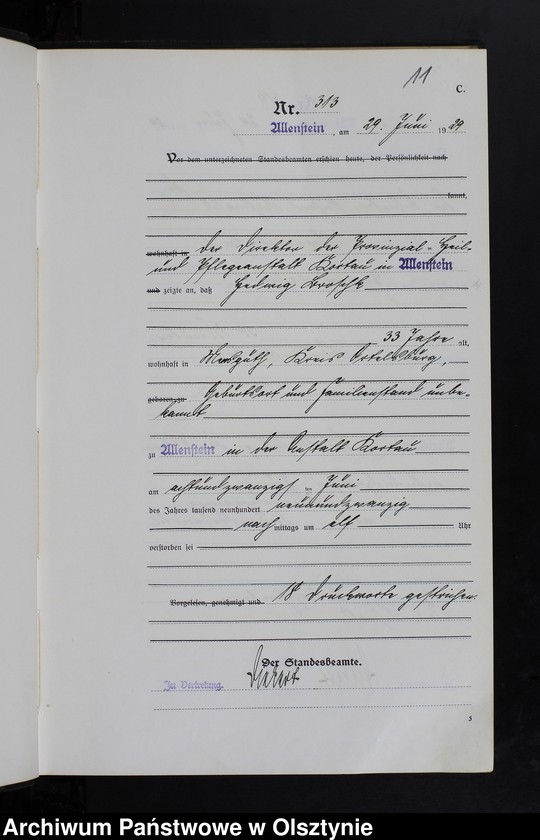 11
C.
Nr. 313
Allenstein, am 29. Juni 1929
Vor dem unterzeichneten Standesbeamten erschien heute, der Persönlichkeit nach
kannt,
wohnhaft in Der Direktor der Provinzial-Heil-
und Pflegeanstalt Kortau in Allenstein
und zeigte an, daß Hedwig Broschk
33 Jahre alt,
wohnhaft in Mensguth, Kreis Ortelsburg,
geboren zu Geburtsort und Familienstand unbe-
kannt
zu Allenstein in der Anstalt Kortau
am achtundzwanzigsten Juni
des Jahres tausend neunhundert neunundzwanzig
nach mittags um elf Uhr
verstorben sei
Vorgelesen, genehmigt und 18 Druckworte gestrichen.
Der Standesbeamte.
In Vertretung.
5
Archiwum Państwowe w Olsztynie